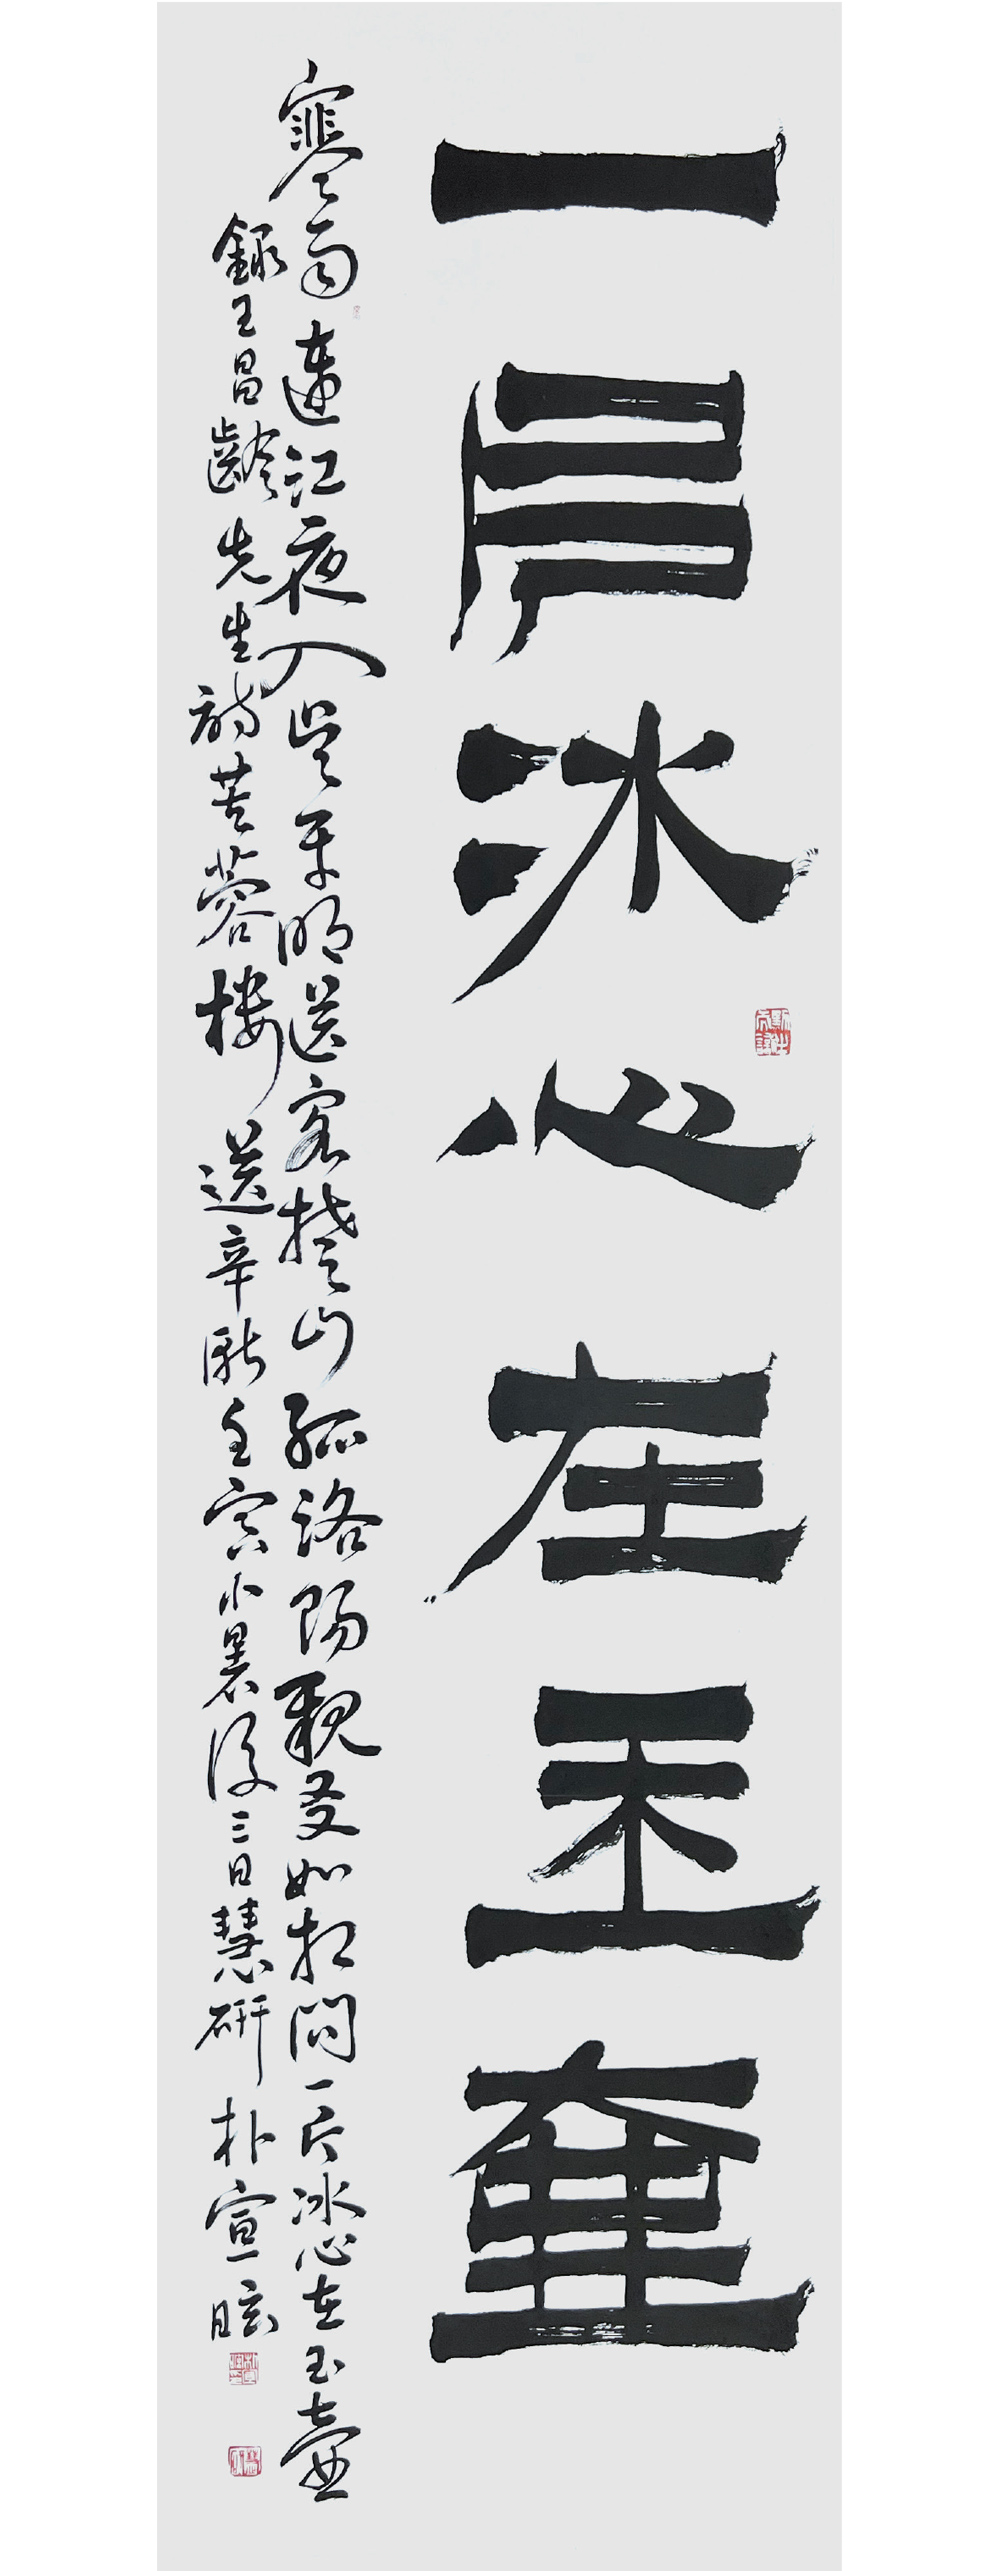 一片冰心在玉壺
寒雨連江夜入吳平明送客楚山孤洛陽親友如相問一片冰心在玉壺
錄王昌齡先生詩芙蓉樓送辛漸壬寅小暑後三日慧研朴宣昡